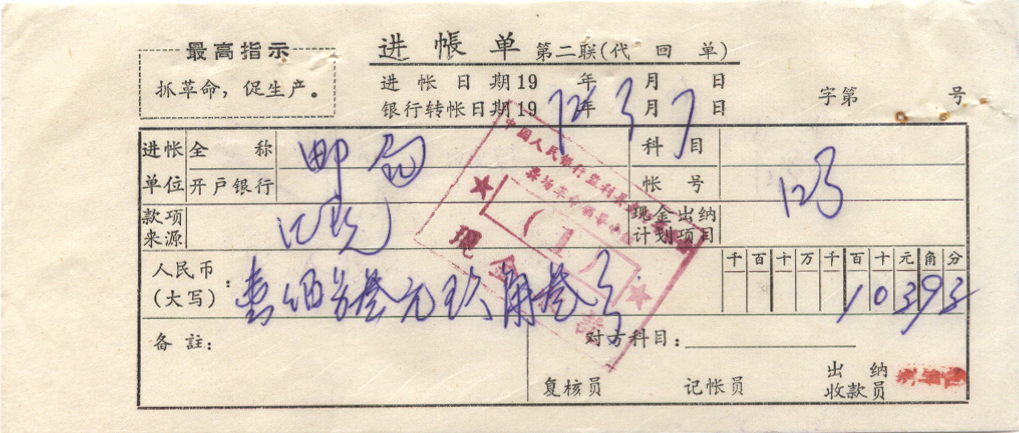 最高指示
抓革命，促生产。
进帐单 第二联(代回单)
进帐日期19 年 月 日
银行转帐日期1972年3月7日
字第 号
进帐单位 全称 邮局 科目
开户银行 帐号 123
款项来源 现金出纳计划项目
人民币(大写)： 壹佰另叁元玖角叁分
千百十万千百十元角分
10393
备註：
对方科目：
复核员 记帐员 出纳收款员
中国人民银行监利县
现金